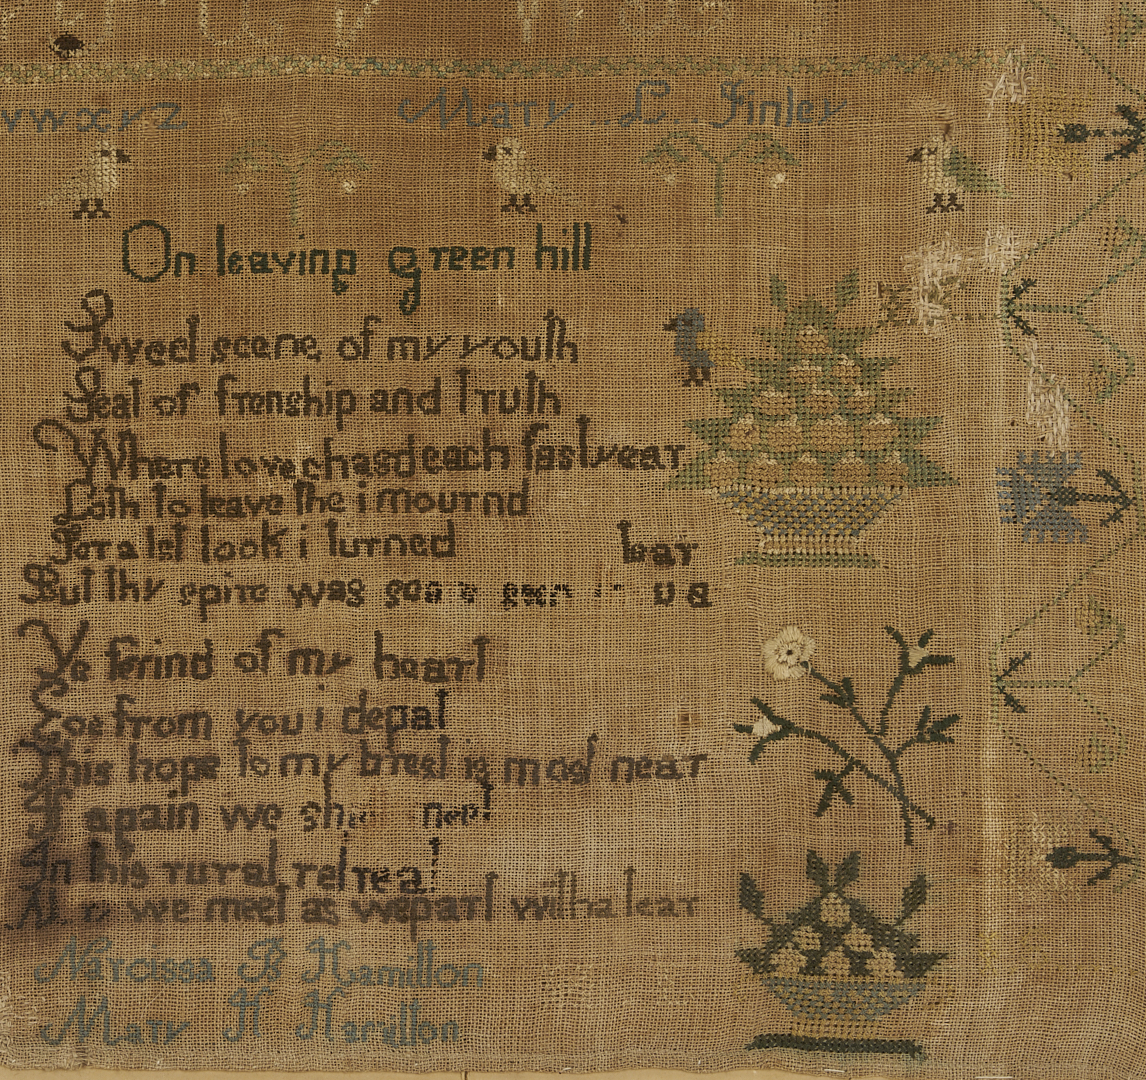 v w x y z Mary L Finley
On leaving green hill
Sweet scene of my youth
Seat of frenship and truth
Where love chasd each fast year
Loth to leave the i mournd
For a lst look i turned tear
But thy spire was seen
Ye ferind of my heart
from you i depat
This hope to my brest is most near
If again we meet
In this rural retreat
we meet as we part with a tear
Narcissa B Hamilton
Mary H Hamilton